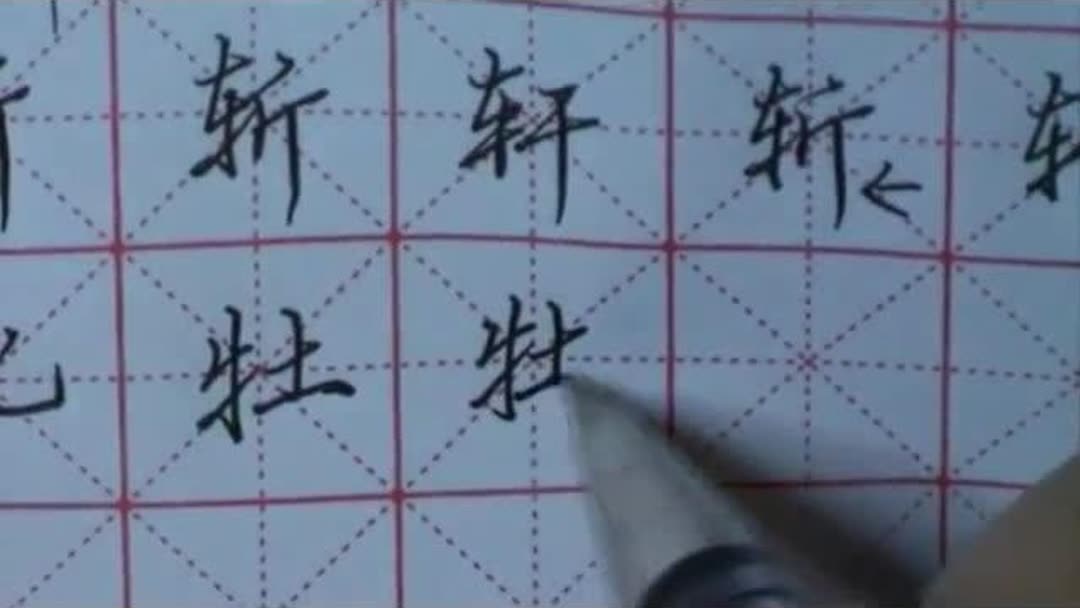 斩 轩 斩 ←
牡 牡